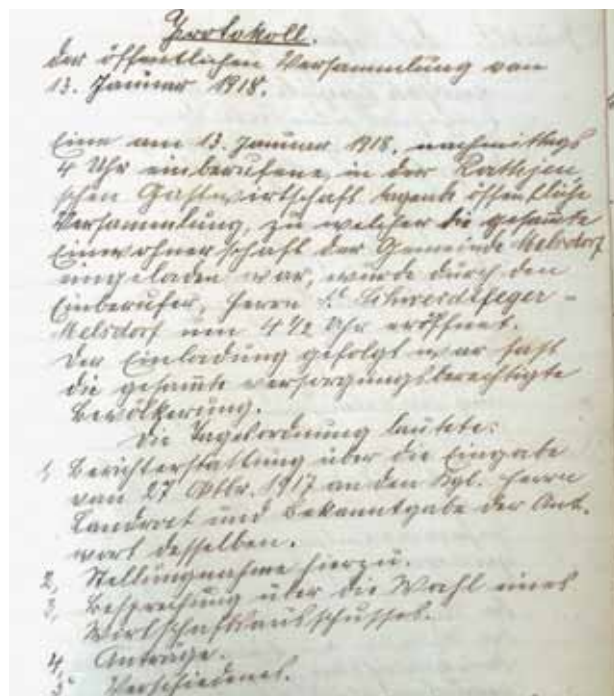 Protokoll.
der öffentlichen Versammlung vom
13. Januar 1918.
Eine am 13. Januar 1918. nachmittags
4 Uhr einberufene, in der Rathjen
schen Gastwirtschaft tagende öffentliche
Versammlung, zu welcher die gesamte
Einwohnerschaft der Gemeinde Melsdorf
eingeladen war, wurde durch den
Einberufer, Herrn Schwerdtfeger -
Melsdorf um 4 1/2 Uhr eröffnet.
Der Einladung gefolgt war fast
die gesamte versorgungsberechtigte
Bevölkerung.
Die Tagesordnung lautete:
1, Berichterstattung über die Eingabe
vom 27 Oktbr. 1917 an den Kgl. Herrn
Landrat und Bekanntgabe der Ant-
wort desselben.
2, Stellungnahme hierzu.
3, Besprechung über die Wahl eines
Wirtschaftsausschusses.
4, Anträge.
5, Verschiedenes.